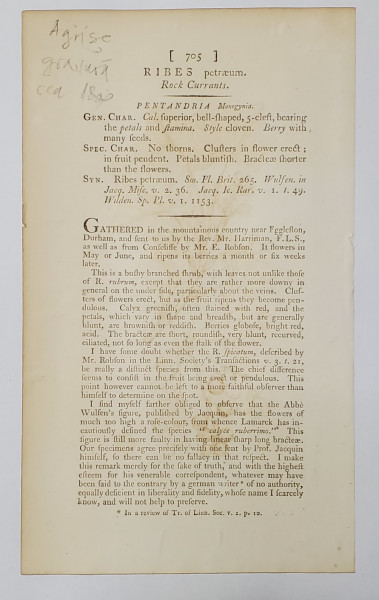 Agrișe
gravură
cca 1800
[ 705 ]
RIBES petræum.
Rock Currants.
PENTANDRIA Monogynia.
GEN. CHAR. Cal. superior, bell-shaped, 5-cleft, bearing
the petals and stamina. Style cloven. Berry with
many seeds.
SPEC. CHAR. No thorns. Clusters in flower erect;
in fruit pendent. Petals bluntish. Bracteæ shorter
than the flowers.
SYN. Ribes petræum. Sm. Fl. Brit. 265. Wulfen. in
Jacq. Misc. v. 2. 36. Jacq. Ic. Rar. v. 1. t. 49.
Willden. Sp. Pl. v. 1. 1153.
GATHERED in the mountainous country near Eggleston,
Durham, and sent to us by the Rev. Mr. Harriman, F.L.S.,
as well as from Conscliffe by Mr. E. Robson. It flowers in
May or June, and ripens its berries a month or six weeks
later.
This is a bushy branched shrub, with leaves not unlike those
of R. rubrum, except that they are rather more downy in
general on the under side, particularly about the veins. Clus-
ters of flowers erect, but as the fruit ripens they become pen-
dulous. Calyx greenish, often stained with red, and the
petals, which vary in shape and breadth, but are generally
blunt, are brownish or reddish. Berries globose, bright red,
acid. The bracteæ are short, roundish, very blunt, recurved,
ciliated, not so long as even the stalk of the flower.
I have some doubt whether the R. spicatum, described by
Mr. Robson in the Linn. Society's Transactions v. 3. t. 21,
be really a distinct species from this. The chief difference
seems to consist in the fruit being erect or pendulous. This
point however cannot be left to a more faithful observer than
himself to determine on the spot.
I find myself farther obliged to observe that the Abbé
Wulfen's figure, published by Jacquin, has the flowers of
much too high a rose-colour, from whence Lamarck has in-
cautiously defined the species "calyce ruberrimo." This
figure is still more faulty in having linear sharp long bracteæ.
Our specimens agree precisely with one sent by Prof. Jacquin
himself, so there can be no fallacy in that respect. I make
this remark merely for the sake of truth, and with the highest
esteem for his venerable correspondent, whatever may have
been said to the contrary by a german writer* of no authority,
equally deficient in liberality and fidelity, whose name I scarcely
know, and will not help to preserve.
* In a review of Tr. of Linn. Soc. v. 2. p. 10.